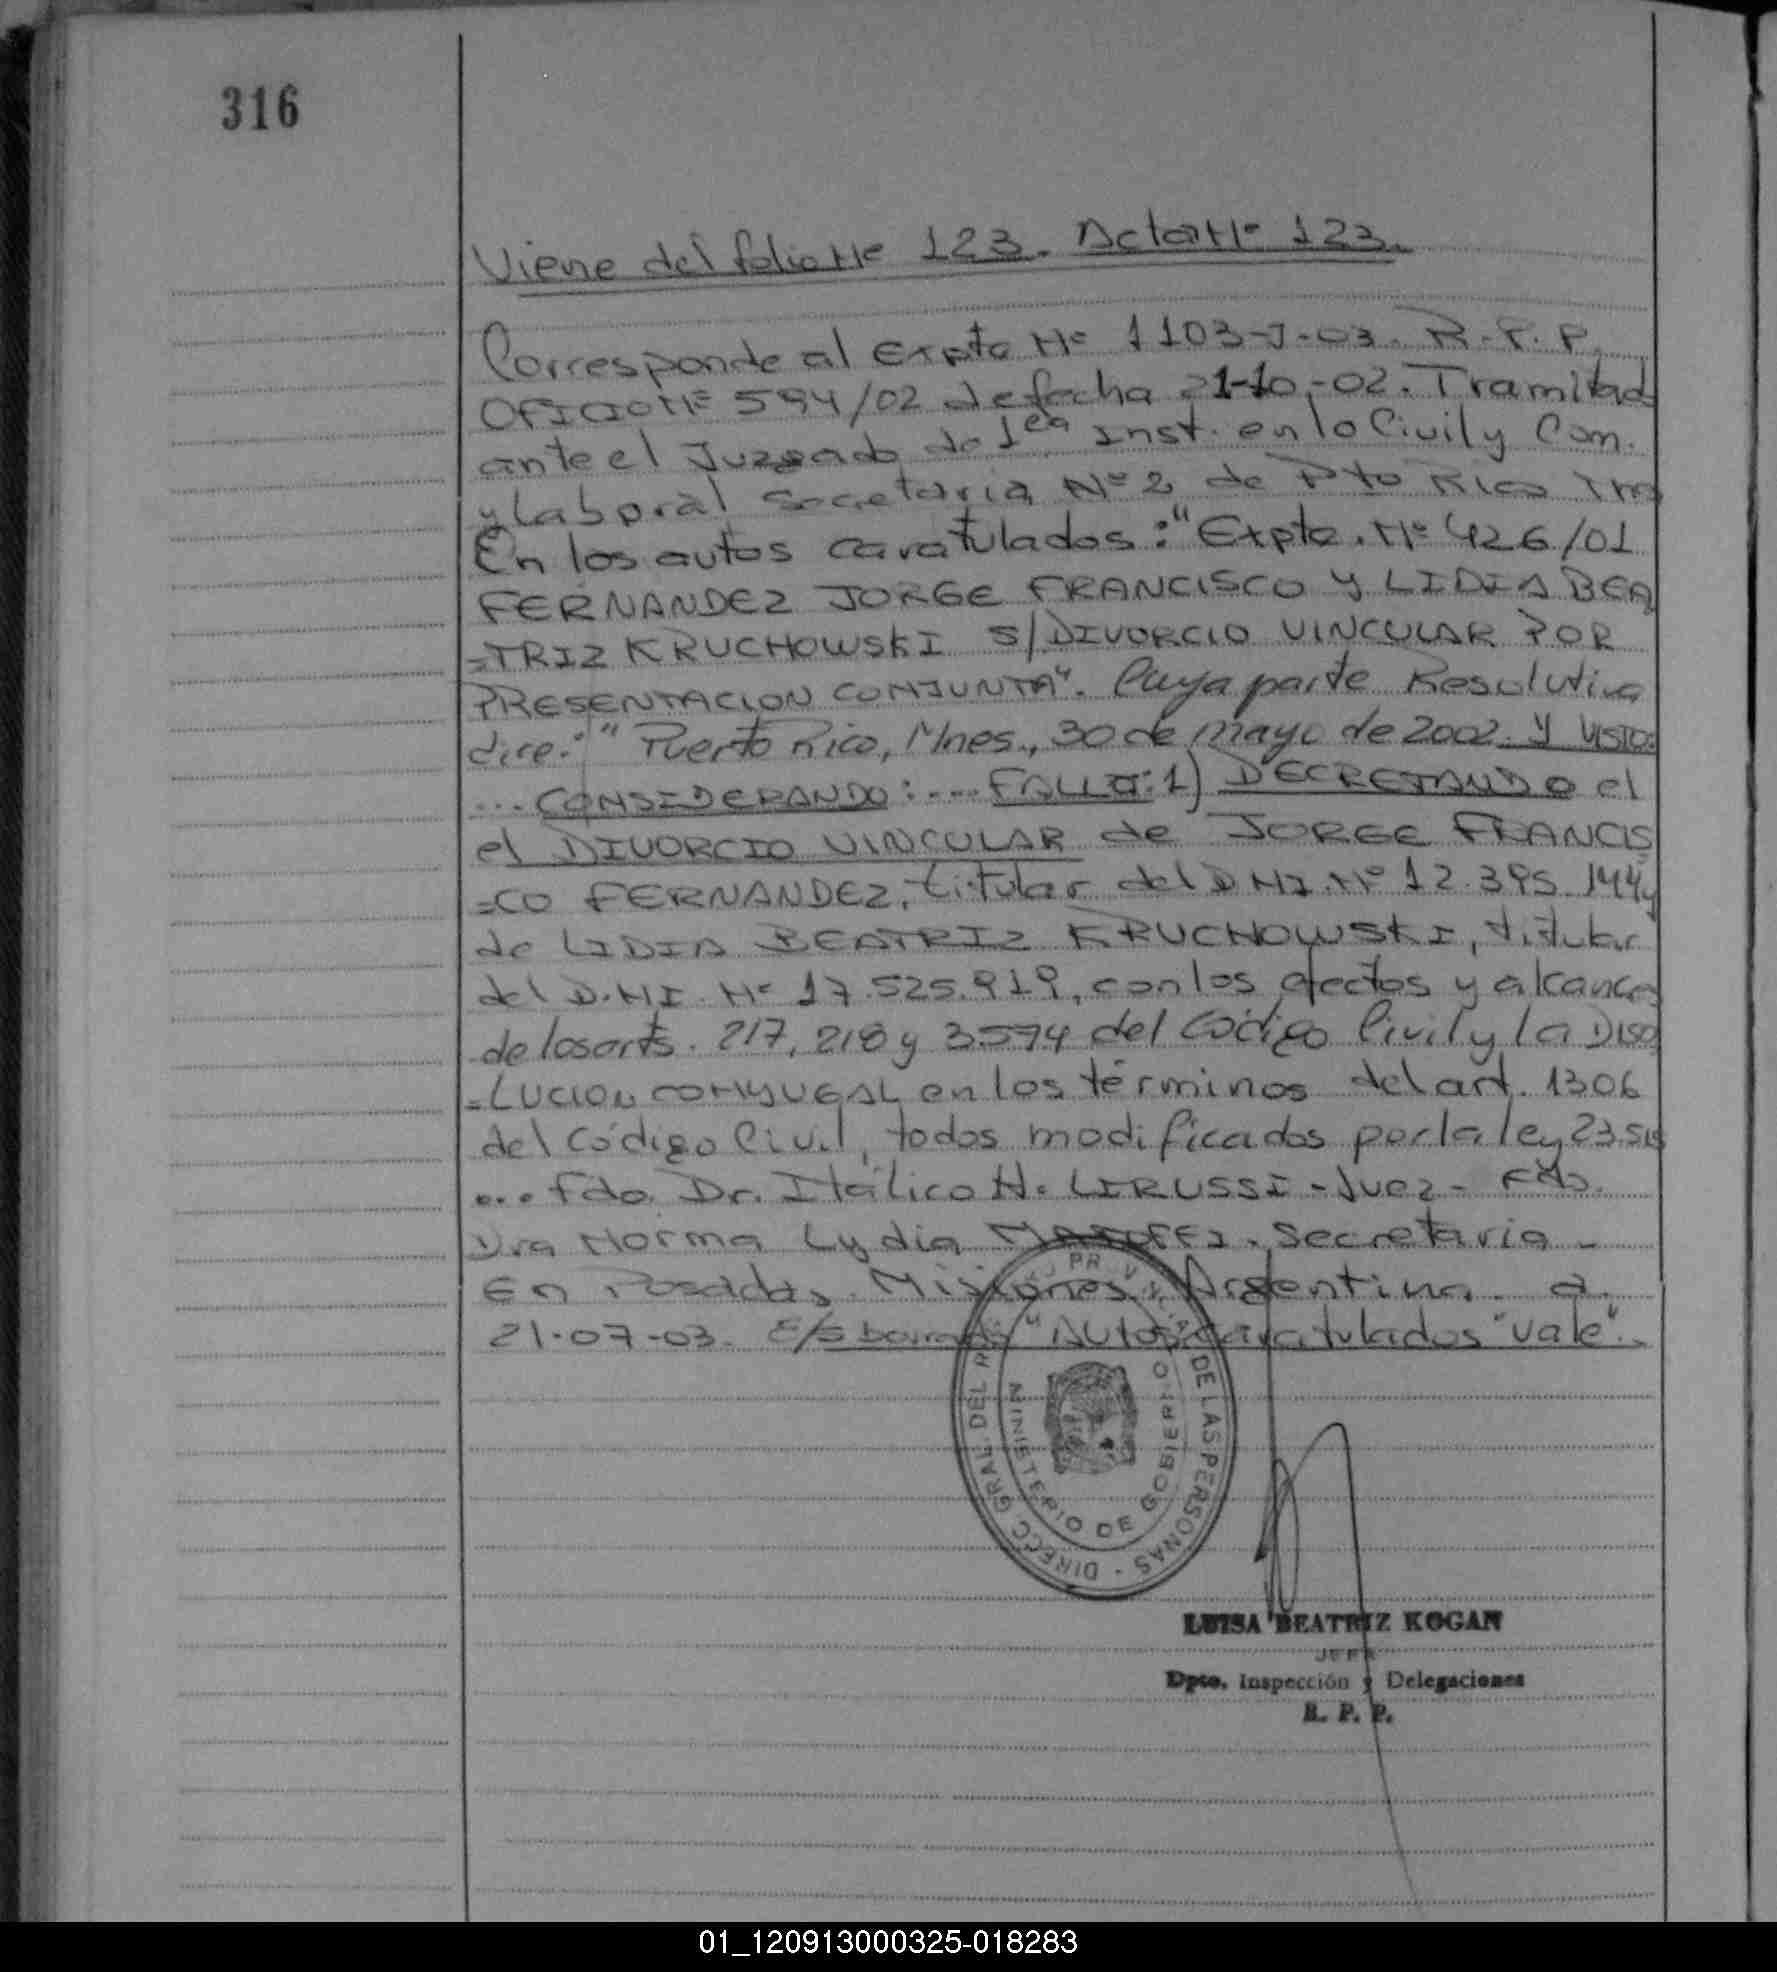 316
Viene del folio Nº 123. Acta Nº 123.
Corresponde al Expte Nº 1103-J-03. R.P.P.
OFICIO Nº 594/02 de fecha 21-10-02. Tramitado
ante el Juzgado de 1ea Inst. en lo Civil y Com.
y Laboral Secretaria Nº 2 de Pto Rico
En los autos caratulados: "Expte. Nº 426/01
FERNANDEZ JORGE FRANCISCO Y LIDIA BEA
=TRIZ KRUCHOWSKI S/DIVORCIO VINCULAR POR
PRESENTACION CONJUNTA". Cuya parte Resolutiva
dice: "Puerto Rico, Mnes., 30 de mayo de 2002. Y VISTO:
...CONSIDERANDO:....FALLO: 1) DECRETANDO el
el DIVORCIO VINCULAR de JORGE FRANCIS
=CO FERNANDEZ, titular del DNI. Nº 12.395.144 y
de LIDIA BEATRIZ KRUCHOWSKI, titular
del D.NI. Nº 17.525.919, con los efectos y alcances
de los arts. 217, 218 y 3.574 del Código Civil y la DISO
=LUCION CONYUGAL en los términos del art. 1306
del Código Civil, todos modificados por la ley 23.515
... Fdo. Dr. Itálico N. LIRUSSI - Juez - Fdo.
Dra Norma Lydia Secretaria -
En Posadas. Misiones. Argentina. a
21-07-03. E/S borrado "Autos caratulados "Vale".
PROVINCIA
DIRECC GRAL. DEL R DE LAS PERSONAS
MINISTERIO DE GOBIERNO
LUISA BEATRIZ KOGAN
JEFE
Dpto. Inspección y Delegaciones
R. P. P.
01_120913000325-018283